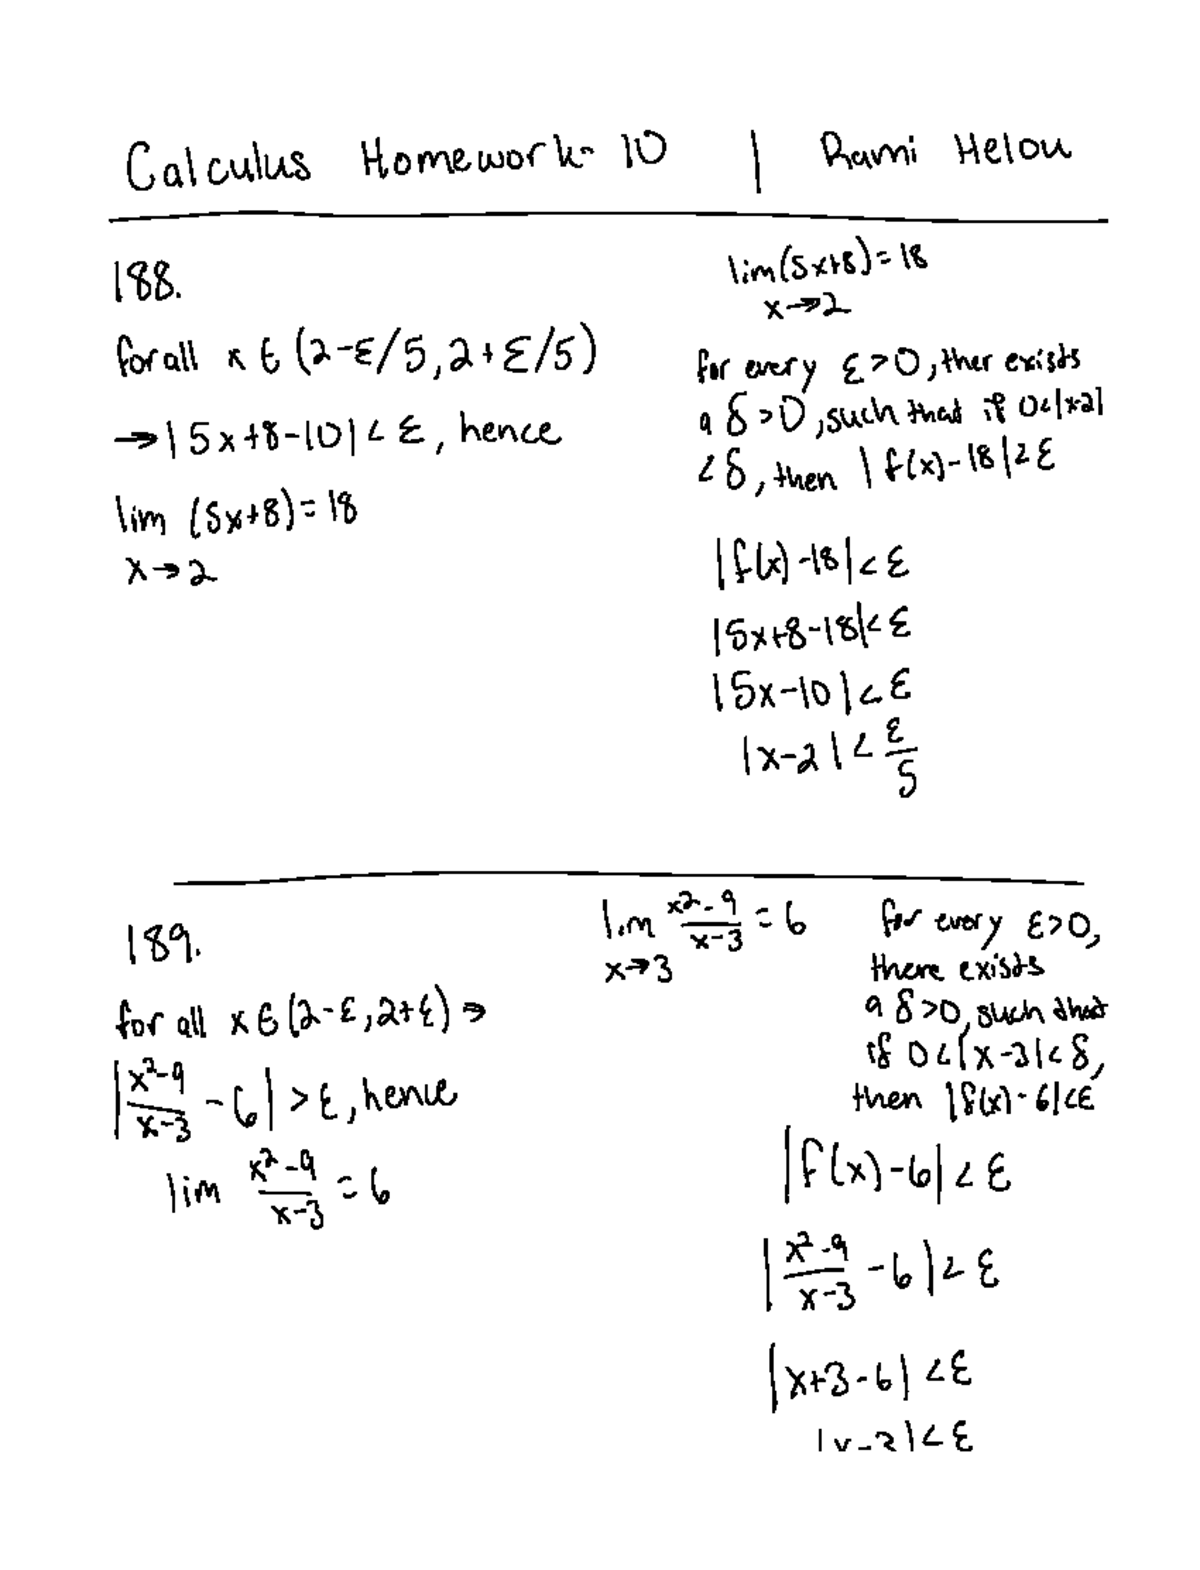 Calculus Homework 10 | Rami Helou
188.
for all x ∈ (2-ε/5, 2+ε/5)
→ |5x+8-10| < ε, hence
lim (5x+8) = 18
x→2
lim(5x+8) = 18
x→2
for every ε>0, ther exists
a δ>0, such that if 0<|x-2|
<δ, then |f(x)-18|<ε
|f(x)-18|<ε
|5x+8-18|<ε
|5x-10|<ε
|x-2|<ε/5
189.
for all x ∈ (2-ε, 2+ε) →
|(x²-9)/(x-3) - 6| > ε, hence
lim (x²-9)/(x-3) = 6
lim (x²-9)/(x-3) = 6
x→3
for every ε>0,
there exists
a δ>0, such that
if 0<|x-3|<δ,
then |f(x)-6|<ε
|f(x)-6|<ε
|(x²-9)/(x-3) - 6|<ε
|x+3-6|<ε
|x-3|<ε